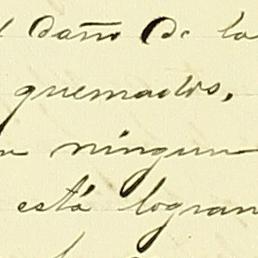 daño de la
quemados,
ningun
está logran